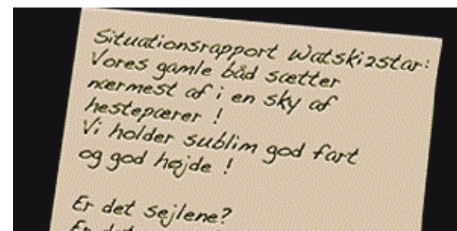 Situationsrapport Watski2star:
Vores gamle båd sætter
nærmest af i en sky af
hestepærer !
Vi holder sublim god fart
og god højde !
Er det sejlene?
Er det